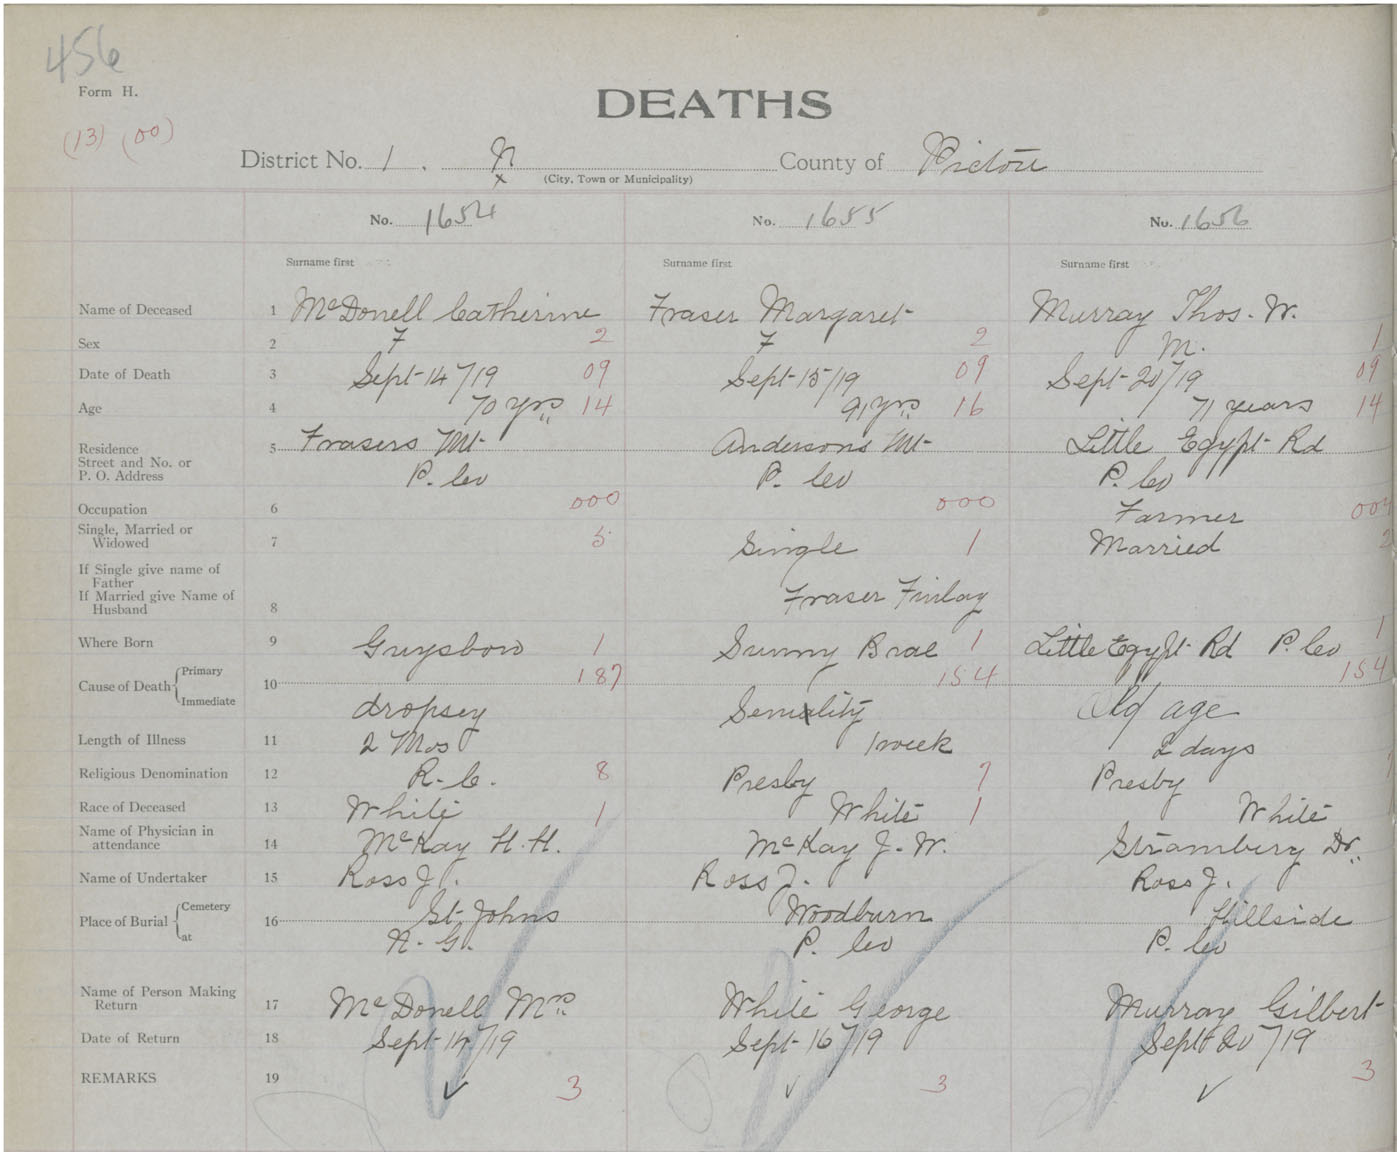 456
Form H.
DEATHS
(13) (00)
District No. 1. N County of Pictou
x (City, Town or Municipality)
No. 1654 No. 1655 No. 1656
Surname first Surname first Surname first
Name of Deceased 1 McDonell Catherine Fraser Margaret Murray Thos. W.
Sex 2 F 2 F 2 M. 1
Date of Death 3 Sept 14/19 09 Sept 15/19 09 Sept 20/19 09
Age 4 70 yrs 14 91 yrs 16 71 years 14
Residence 5 Frasers Mt Andersons Mt Little Egypt Rd
Street and No. or
P. O. Address P. Co P. Co P. Co
Occupation 6 000 000 Farmer
Single, Married or
Widowed 7 5 Single 1 Married 2
If Single give name of
Father
If Married give Name of
Husband 8 Fraser Finlay
Where Born 9 Guysboro 1 Sunny Brae 1 Little Egypt Rd P. Co 1
Cause of Death Primary 10 187 154 154
Immediate dropsey Senility Old age
Length of Illness 11 2 Mos 1 week 2 days
Religious Denomination 12 R. C. 8 Presby 7 Presby
Race of Deceased 13 White 1 White 1 White
Name of Physician in
attendance 14 McKay H. H. McKay J. W. Dr.
Name of Undertaker 15 Ross J. Ross J. Ross J.
Place of Burial Cemetery 16 St. Johns Woodburn Hillside
at N. G. P. Co P. Co
Name of Person Making
Return 17 McDonell Mrs White George Murray Gilbert
Date of Return 18 Sept 14/19 Sept 16/19 Sept 20/19
REMARKS 19 ✓ 3 ✓ 3 ✓ 3